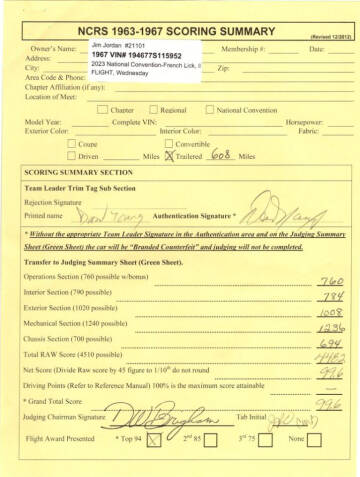 NCRS 1963-1967 SCORING SUMMARY
(Revised 12/2012)
Owner's Name: Jim Jordan #21101 Membership #: Date:
Address: 1967 VIN# 194677S115952
City: 2023 National Convention-French Lick, Zip:
Area Code & Phone: FLIGHT, Wednesday
Chapter Affiliation (if any):
Location of Meet:
Chapter Regional National Convention
Model Year: Complete VIN: Horsepower:
Exterior Color: Interior Color: Fabric:
Coupe Convertible
Driven Miles X Trailered 608 Miles
SCORING SUMMARY SECTION
Team Leader Trim Tag Sub Section
Rejection Signature
Printed name Authentication Signature *
* Without the appropriate Team Leader Signature in the Authentication area and on the Judging Summary
Sheet (Green Sheet) the car will be "Branded Counterfeit" and judging will not be completed.
Transfer to Judging Summary Sheet (Green Sheet).
Operations Section (760 possible w/bonus) 760
Interior Section (790 possible) 784
Exterior Section (1020 possible) 1008
Mechanical Section (1240 possible) 1236
Chassis Section (700 possible) 694
Total RAW Score (4510 possible) 4482
Net Score (Divide Raw score by 45 figure to 1/10th do not round 99.6
Driving Points (Refer to Reference Manual) 100% is the maximum score attainable —
* Grand Total Score 99.6
Judging Chairman Signature Tab Initial
Flight Award Presented * Top 94 X 2nd 85 3rd 75 None